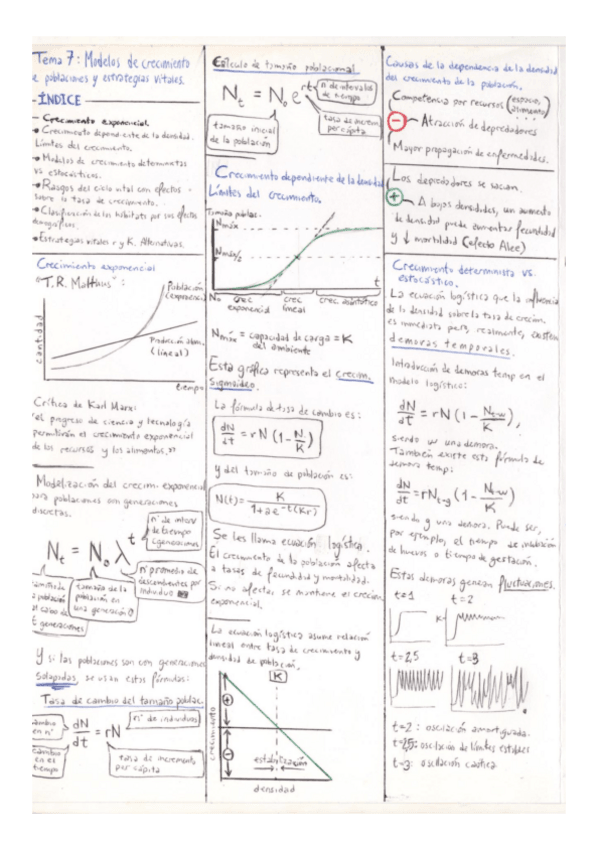 Tema 7: Modelos de crecimiento
de poblaciones y estrategias vitales.
ÍNDICE
- Crecimiento exponencial.
Crecimiento dependiente de la densidad.
Límites del crecimiento.
Modelos de crecimiento deterministas
vs estocásticos.
Rasgos del ciclo vital con efectos
sobre la tasa de crecimiento.
Clasificación de los hábitats por sus efectos
demográficos.
Estrategias vitales r y K. Alternativas.
Crecimiento exponencial
"T.R. Malthus":
Población
(exponencial
Producción alim.
(lineal)
cantidad
tiempo
Crítica de Karl Marx:
"el progreso de ciencia y tecnología
permitirán el crecimiento exponencial
de los recursos y los alimentos."
Modelización del crecim. exponencial
para poblaciones con generaciones
discretas.
Nt = N₀ λ^t
nº de interv
de tiempo
(generaciones
nº promedio de
descendientes por
individuo
tamaño de la
población en
una generación 0
tamaño de
la población
al cabo de
t generaciones
Y si las poblaciones son con generaciones
solapadas, se usan estas fórmulas:
Tasa de cambio del tamaño poblac.
cambio
en nº
cambio
en el
tiempo
dN/dt = rN
nº de individuos
tasa de incremento
per cápita
Cálculo de tamaño poblacional
Nt = N₀ e^rt
nº de intervalos
de tiempo
tamaño inicial
de la población
tasa de increm.
per cápita
Crecimiento dependiente de la densidad
Límites del crecimiento.
Tamaño poblac.
Nmáx
Nmáx/2
N₀
t
crec.
exponencial
crec
lineal
crec. asintótico
Nmáx = capacidad de carga = K
del ambiente
Esta gráfica representa el crecim.
sigmoideo.
La fórmula de tasa de cambio es:
dN/dt = rN (1 - N/K)
y del tamaño de población es:
N(t) = K / 1+ae^-t(Kr)
Se les llama ecuación logística.
El crecimiento de la población afecta
a tasas de fecundidad y mortalidad.
Si no afecta, se mantiene el crecim.
exponencial.
La ecuación logística asume relación
lineal entre tasa de crecimiento y
densidad de población.
K
+
-
crecimiento
estabilización
densidad
Causas de la dependencia de la densidad
del crecimiento de la población.
Competencia por recursos (espacio,
alimento)
- Atracción de depredadores
Mayor propagación de enfermedades.
Los depredadores se sacian.
+ A bajas densidades, un aumento
de densidad puede aumentar fecundidad
y ↓ mortalidad (efecto Allee)
Crecimiento determinista vs.
estocástico.
La ecuación logística que la influencia
de la densidad sobre la tasa de crecim.
es inmediata pero, realmente, existen
demoras temporales.
Introducción de demoras temp en el
modelo logístico:
dN/dt = rN (1 - Nt-w/K),
siendo w una demora.
También existe esta fórmula de
demora temp:
dN/dt = rNt-g (1 - Nt-w/K)
siendo g una demora. Puede ser,
por ejemplo, el tiempo de incubación
de huevos o tiempo de gestación.
Estas demoras generan fluctuaciones.
t=1
t=2
K
t=2,5
t=3
t=2: oscilación amortiguada.
t=2,5: oscilación de límites establec
t=3: oscilación caótica